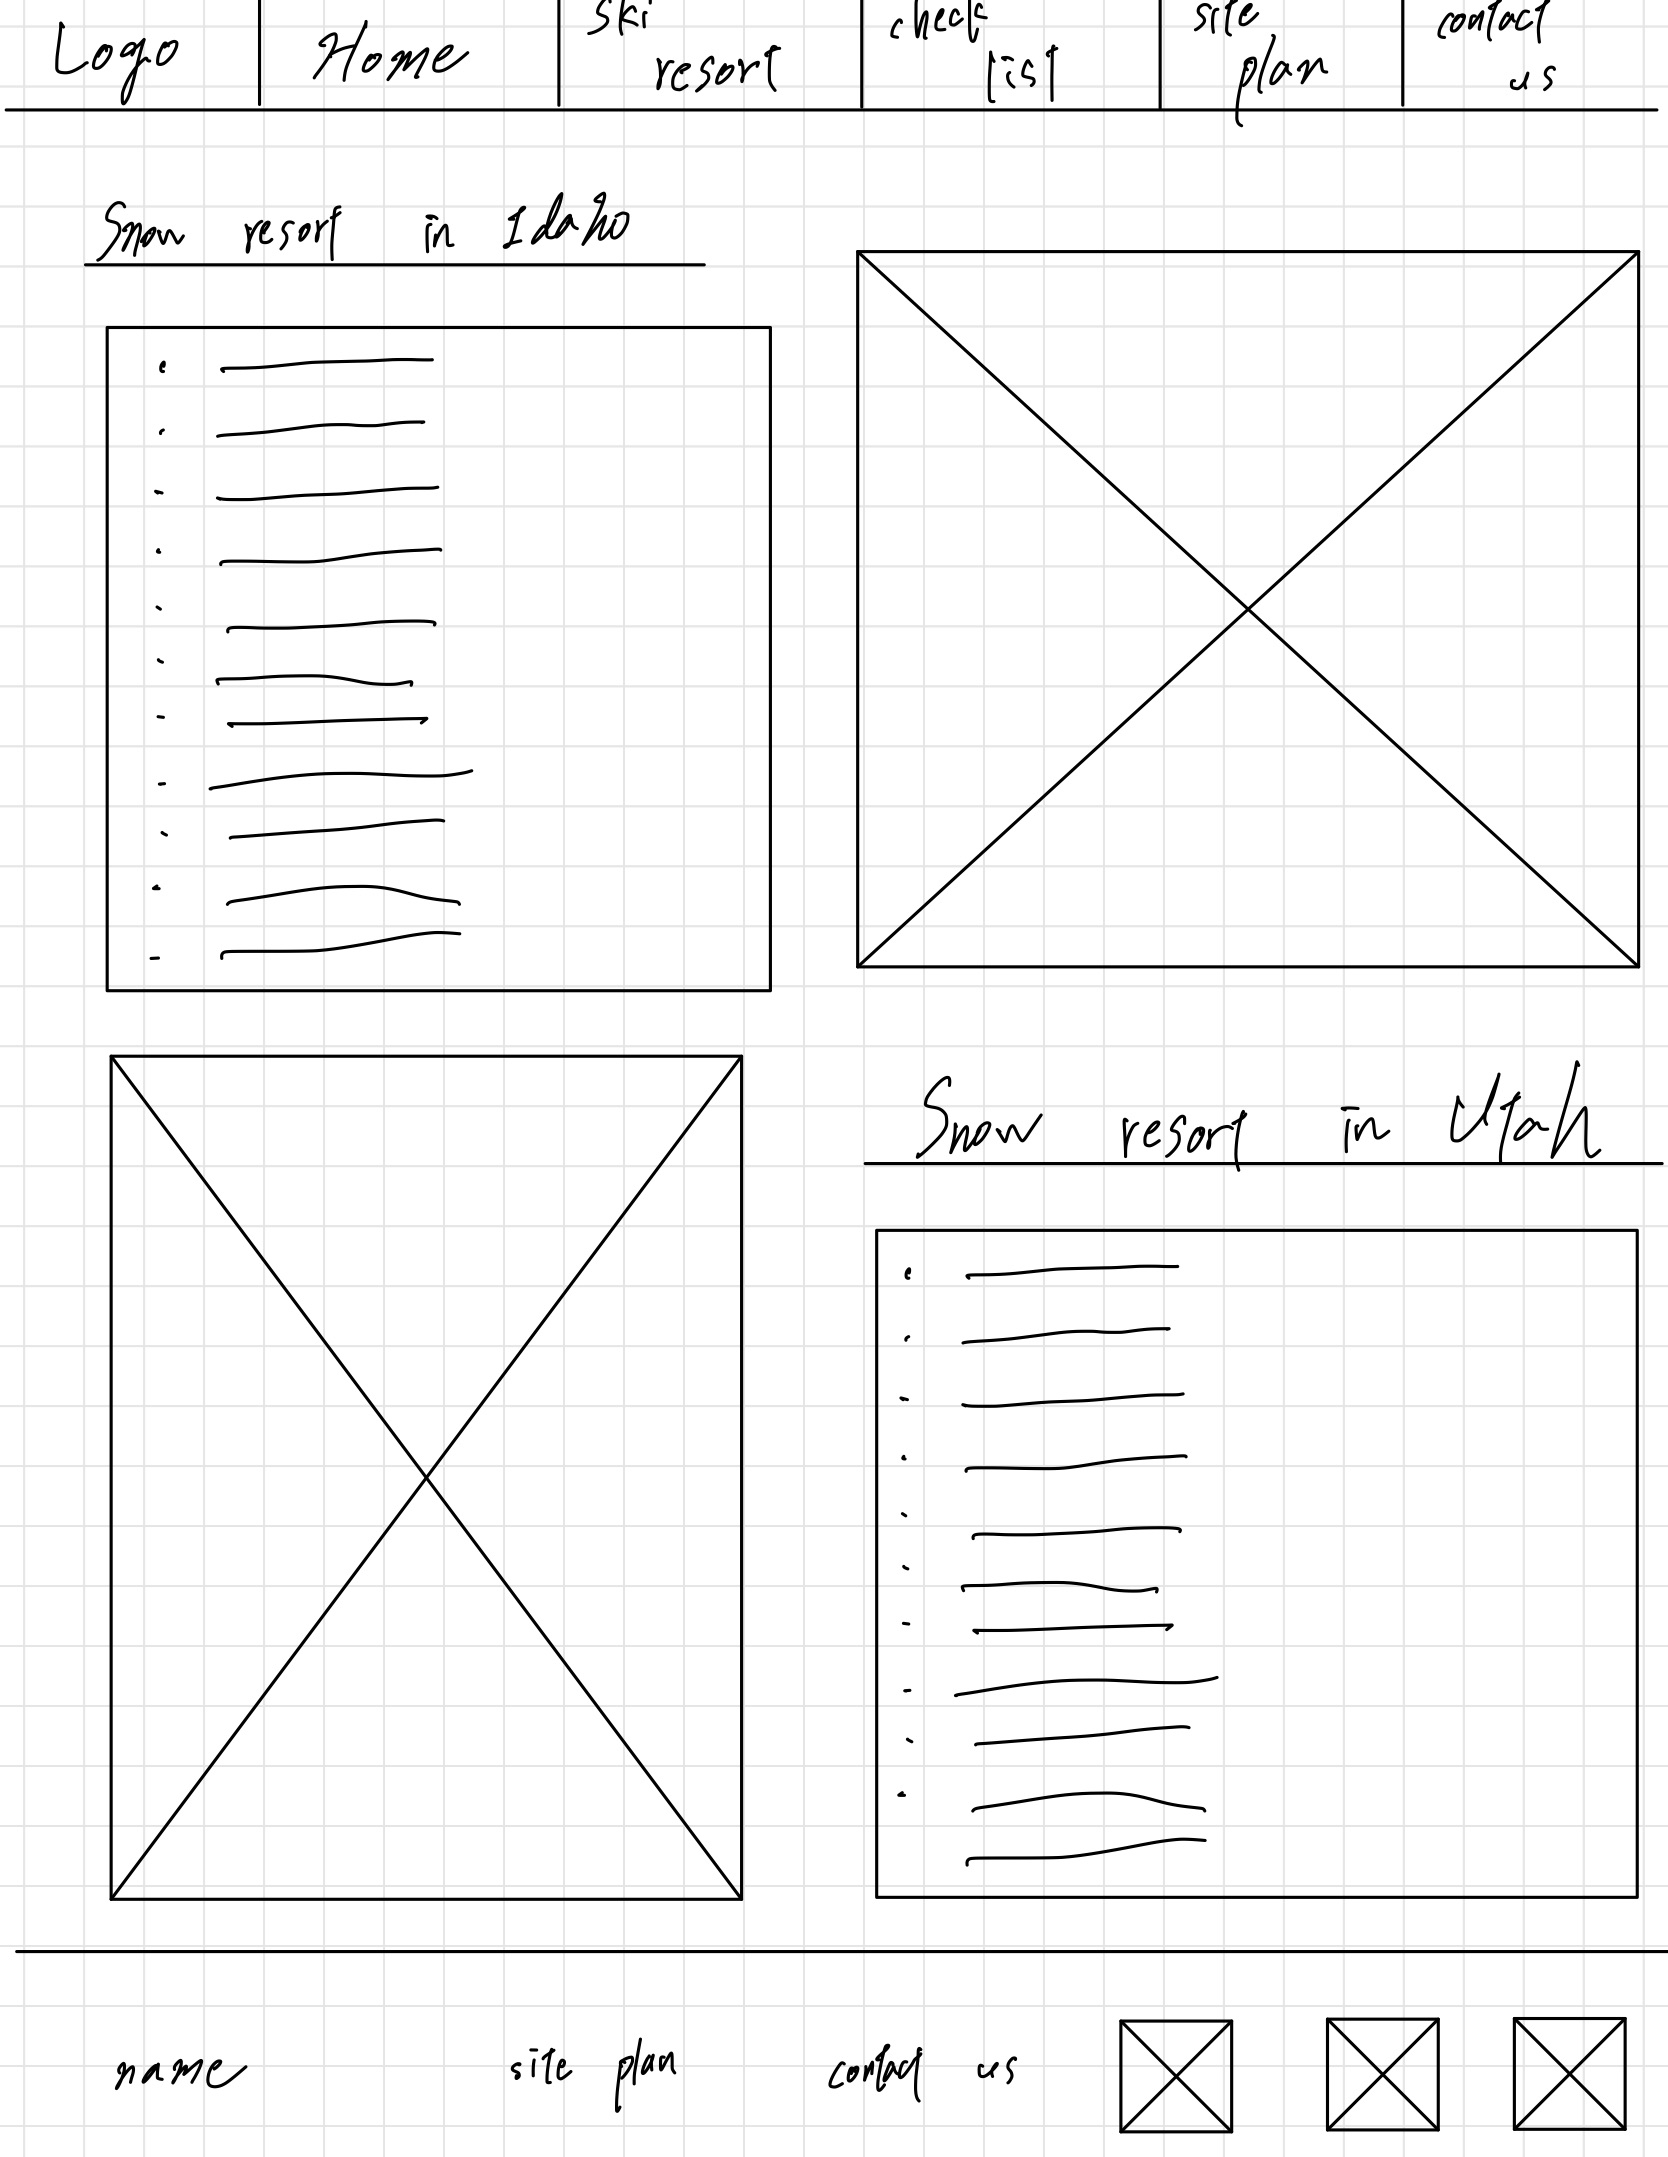 Logo
Home
Ski
resort
check
list
site
plan
contact
us
Snow resort in Idaho
Snow resort in Utah
name
site plan
contact us